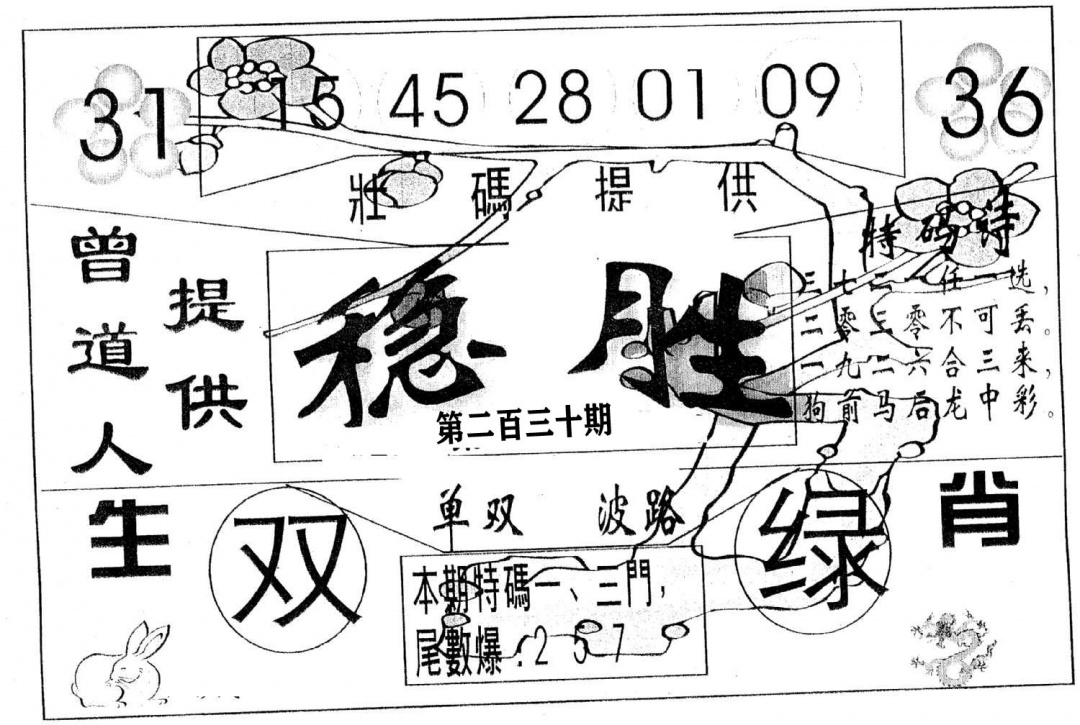 31 15 45 28 01 09 36
壯碼提供
曾道人
提供
特码诗
三七二一任一选，
二零三零不可丢。
一九二六合三来，
狗前马后龙中彩。
稳胜
第二百三十期
生肖
单双 波路
双
绿
本期特碼一、三門，
尾數爆：2 5 7